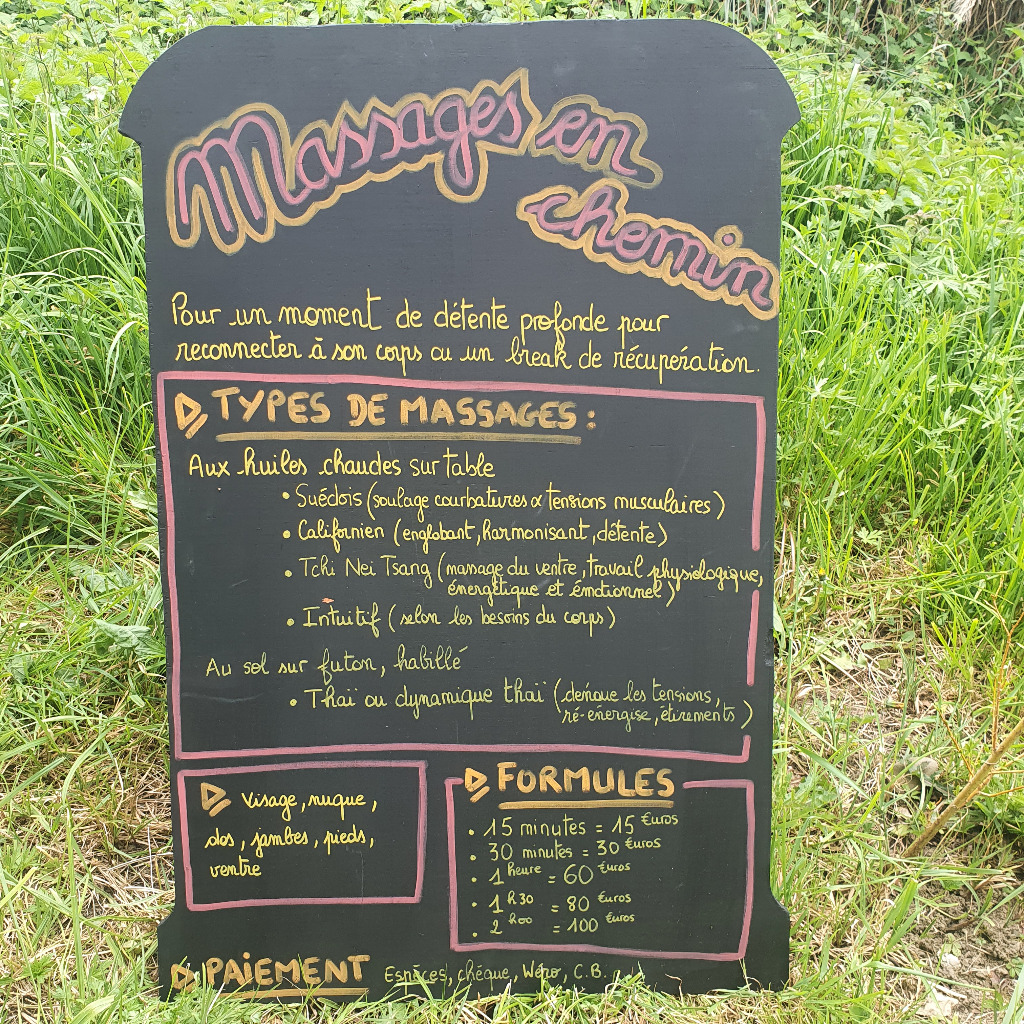 Massages en
chemin
Pour un moment de détente profonde pour
reconnecter à son corps ou un break de récupération.
TYPES DE MASSAGES :
Aux huiles chaudes sur table
• Suédois (soulage courbatures & tensions musculaires)
• Californien (englobant, harmonisant, détente)
• Tchi Nei Tsang (massage du ventre, travail physiologique,
énergétique et émotionnel)
• Intuitif (selon les besoins du corps)
Au sol sur futon, habillé
• Thaï ou dynamique thaï (dénoue les tensions,
ré-énergise, étirements)
Visage, nuque,
dos, jambes, pieds,
ventre
FORMULES
• 15 minutes = 15 €uros
• 30 minutes = 30 €uros
• 1 heure = 60 €uros
• 1 h 30 = 80 €uros
• 2 h 00 = 100 €uros
PAIEMENT Espèces, chèque, Wéro, C.B.